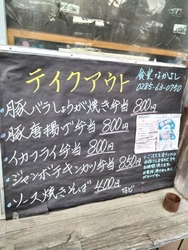 テイクアウト
食堂
0285-63-0750
・豚バラしょうが焼き弁当 800円
・豚唐揚げ弁当 800円
・イカフライ弁当 800円
・ジャンボチキンカツ弁当 850円
・ソース焼きそば 400円